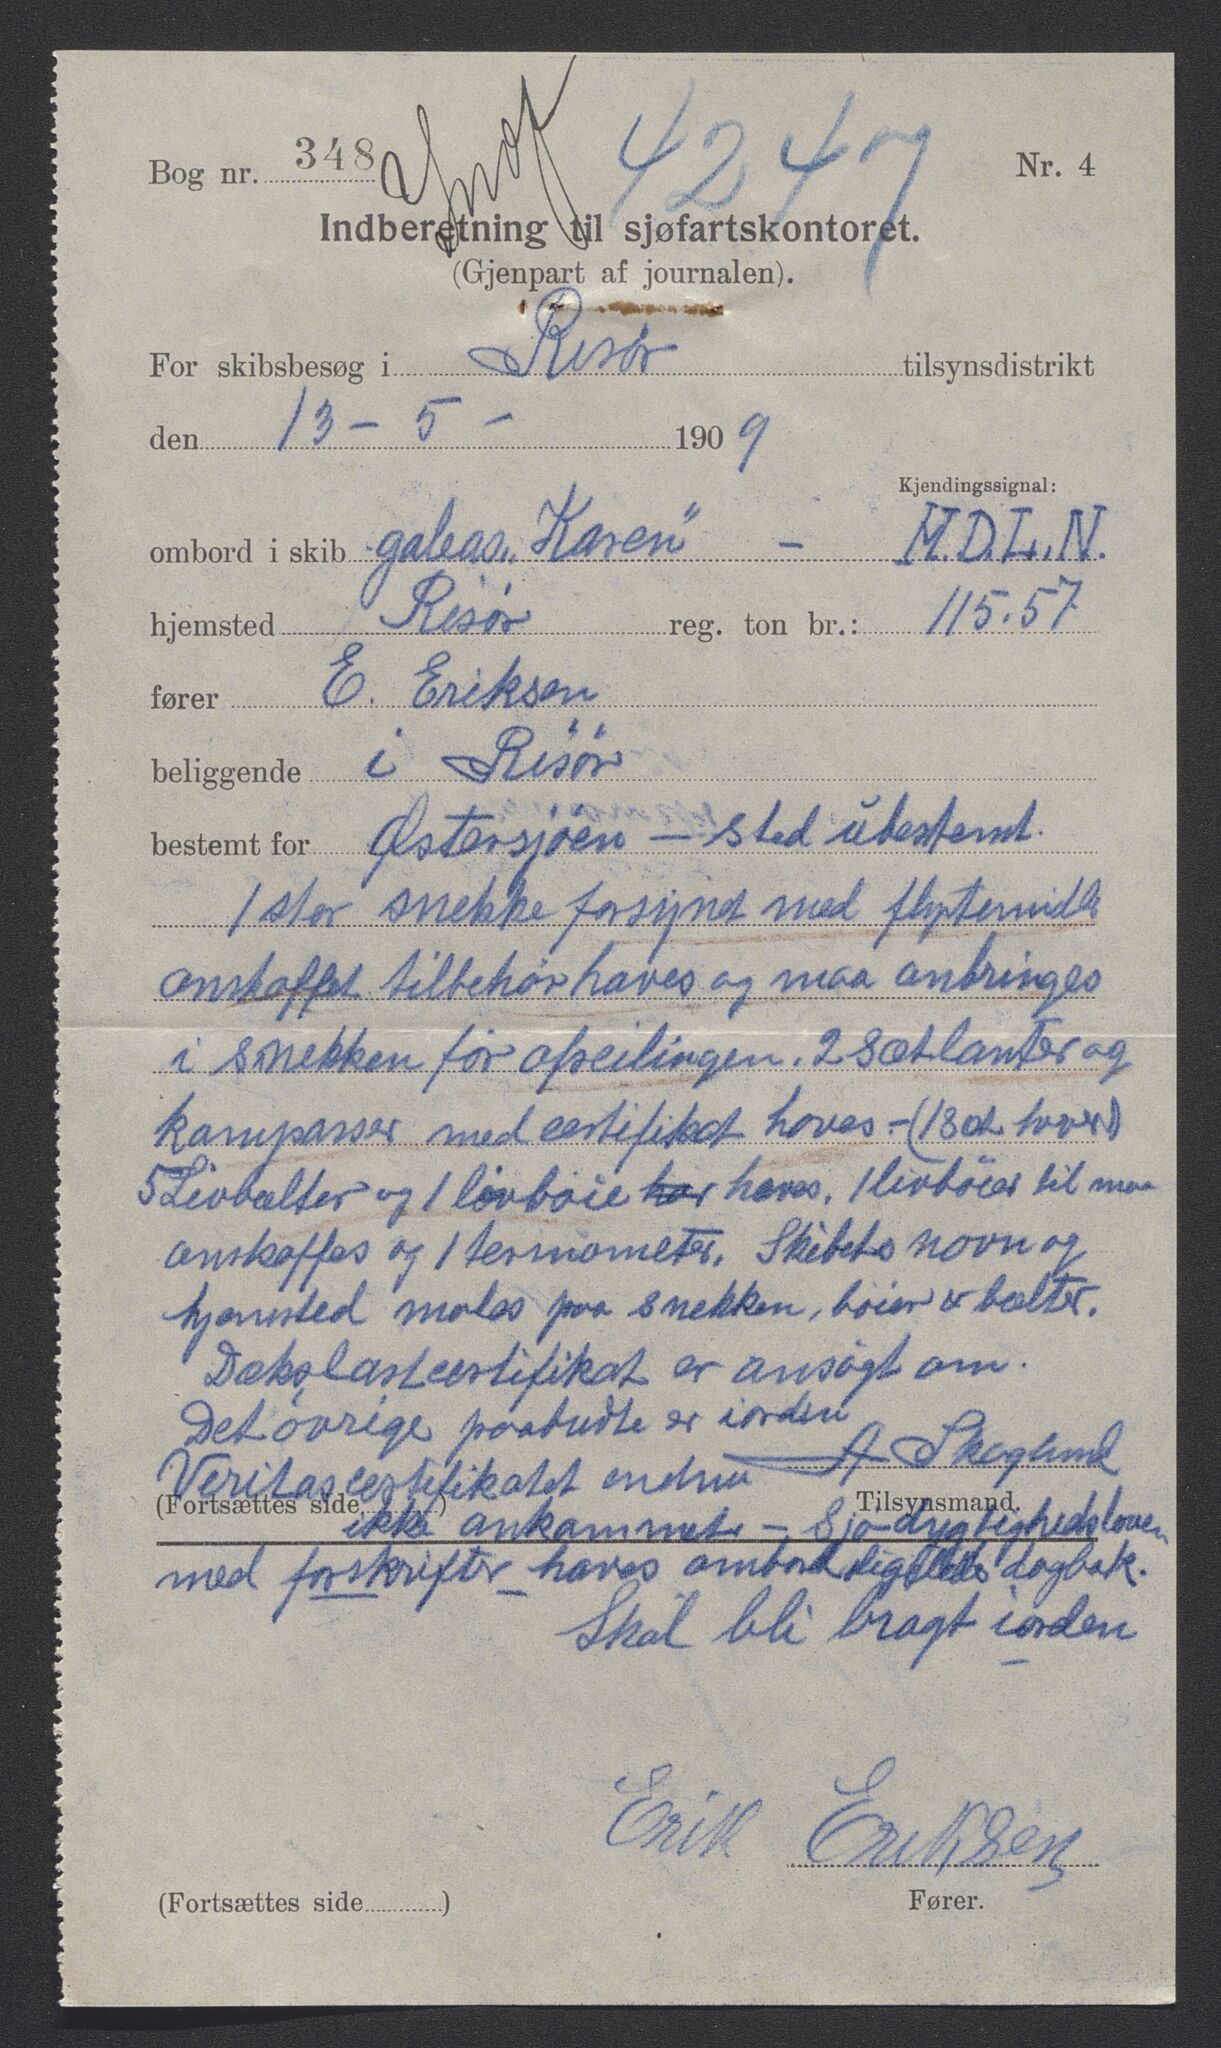 Bog nr. 348 4247 Nr. 4
Indberetning til sjøfartskontoret.
(Gjenpart af journalen).
For skibsbesøg i Risør tilsynsdistrikt
den 13 - 5 - 1909
Kjendingssignal:
ombord i skib galeas „Karen" - M.D.L.N.
hjemsted Risør reg. ton br.: 115.57
fører E. Eriksen
beliggende i Risör
bestemt for Østersjøen - sted ubestemt.
1 stor snekke forsynet med flytemidler
anskaffet tilbehør haves og maa anbringes
i snekken før afseilingen. 2 sæt lanter og
kompasser med certifikat haves - (1 sæt hver)
5 Livbælter og 1 livböie har haves. 1 livböier til maa
anskaffes og 1 termometer. Skibets navn og
hjemsted males paa snekken, böier & bælter.
Dækslastcertifikat er ansögt om.
Det övrige paabudte er iorden
Veritascertifikatet endnu A Skoglund
(Fortsættes side ) Tilsynsmand.
ikke ankommet - Sjödygtighedsloven
med forskrifter haves ombord ligeledes dagbok.
Skal bli bragt iorden
Erik Eriksen
(Fortsættes side ) Fører.